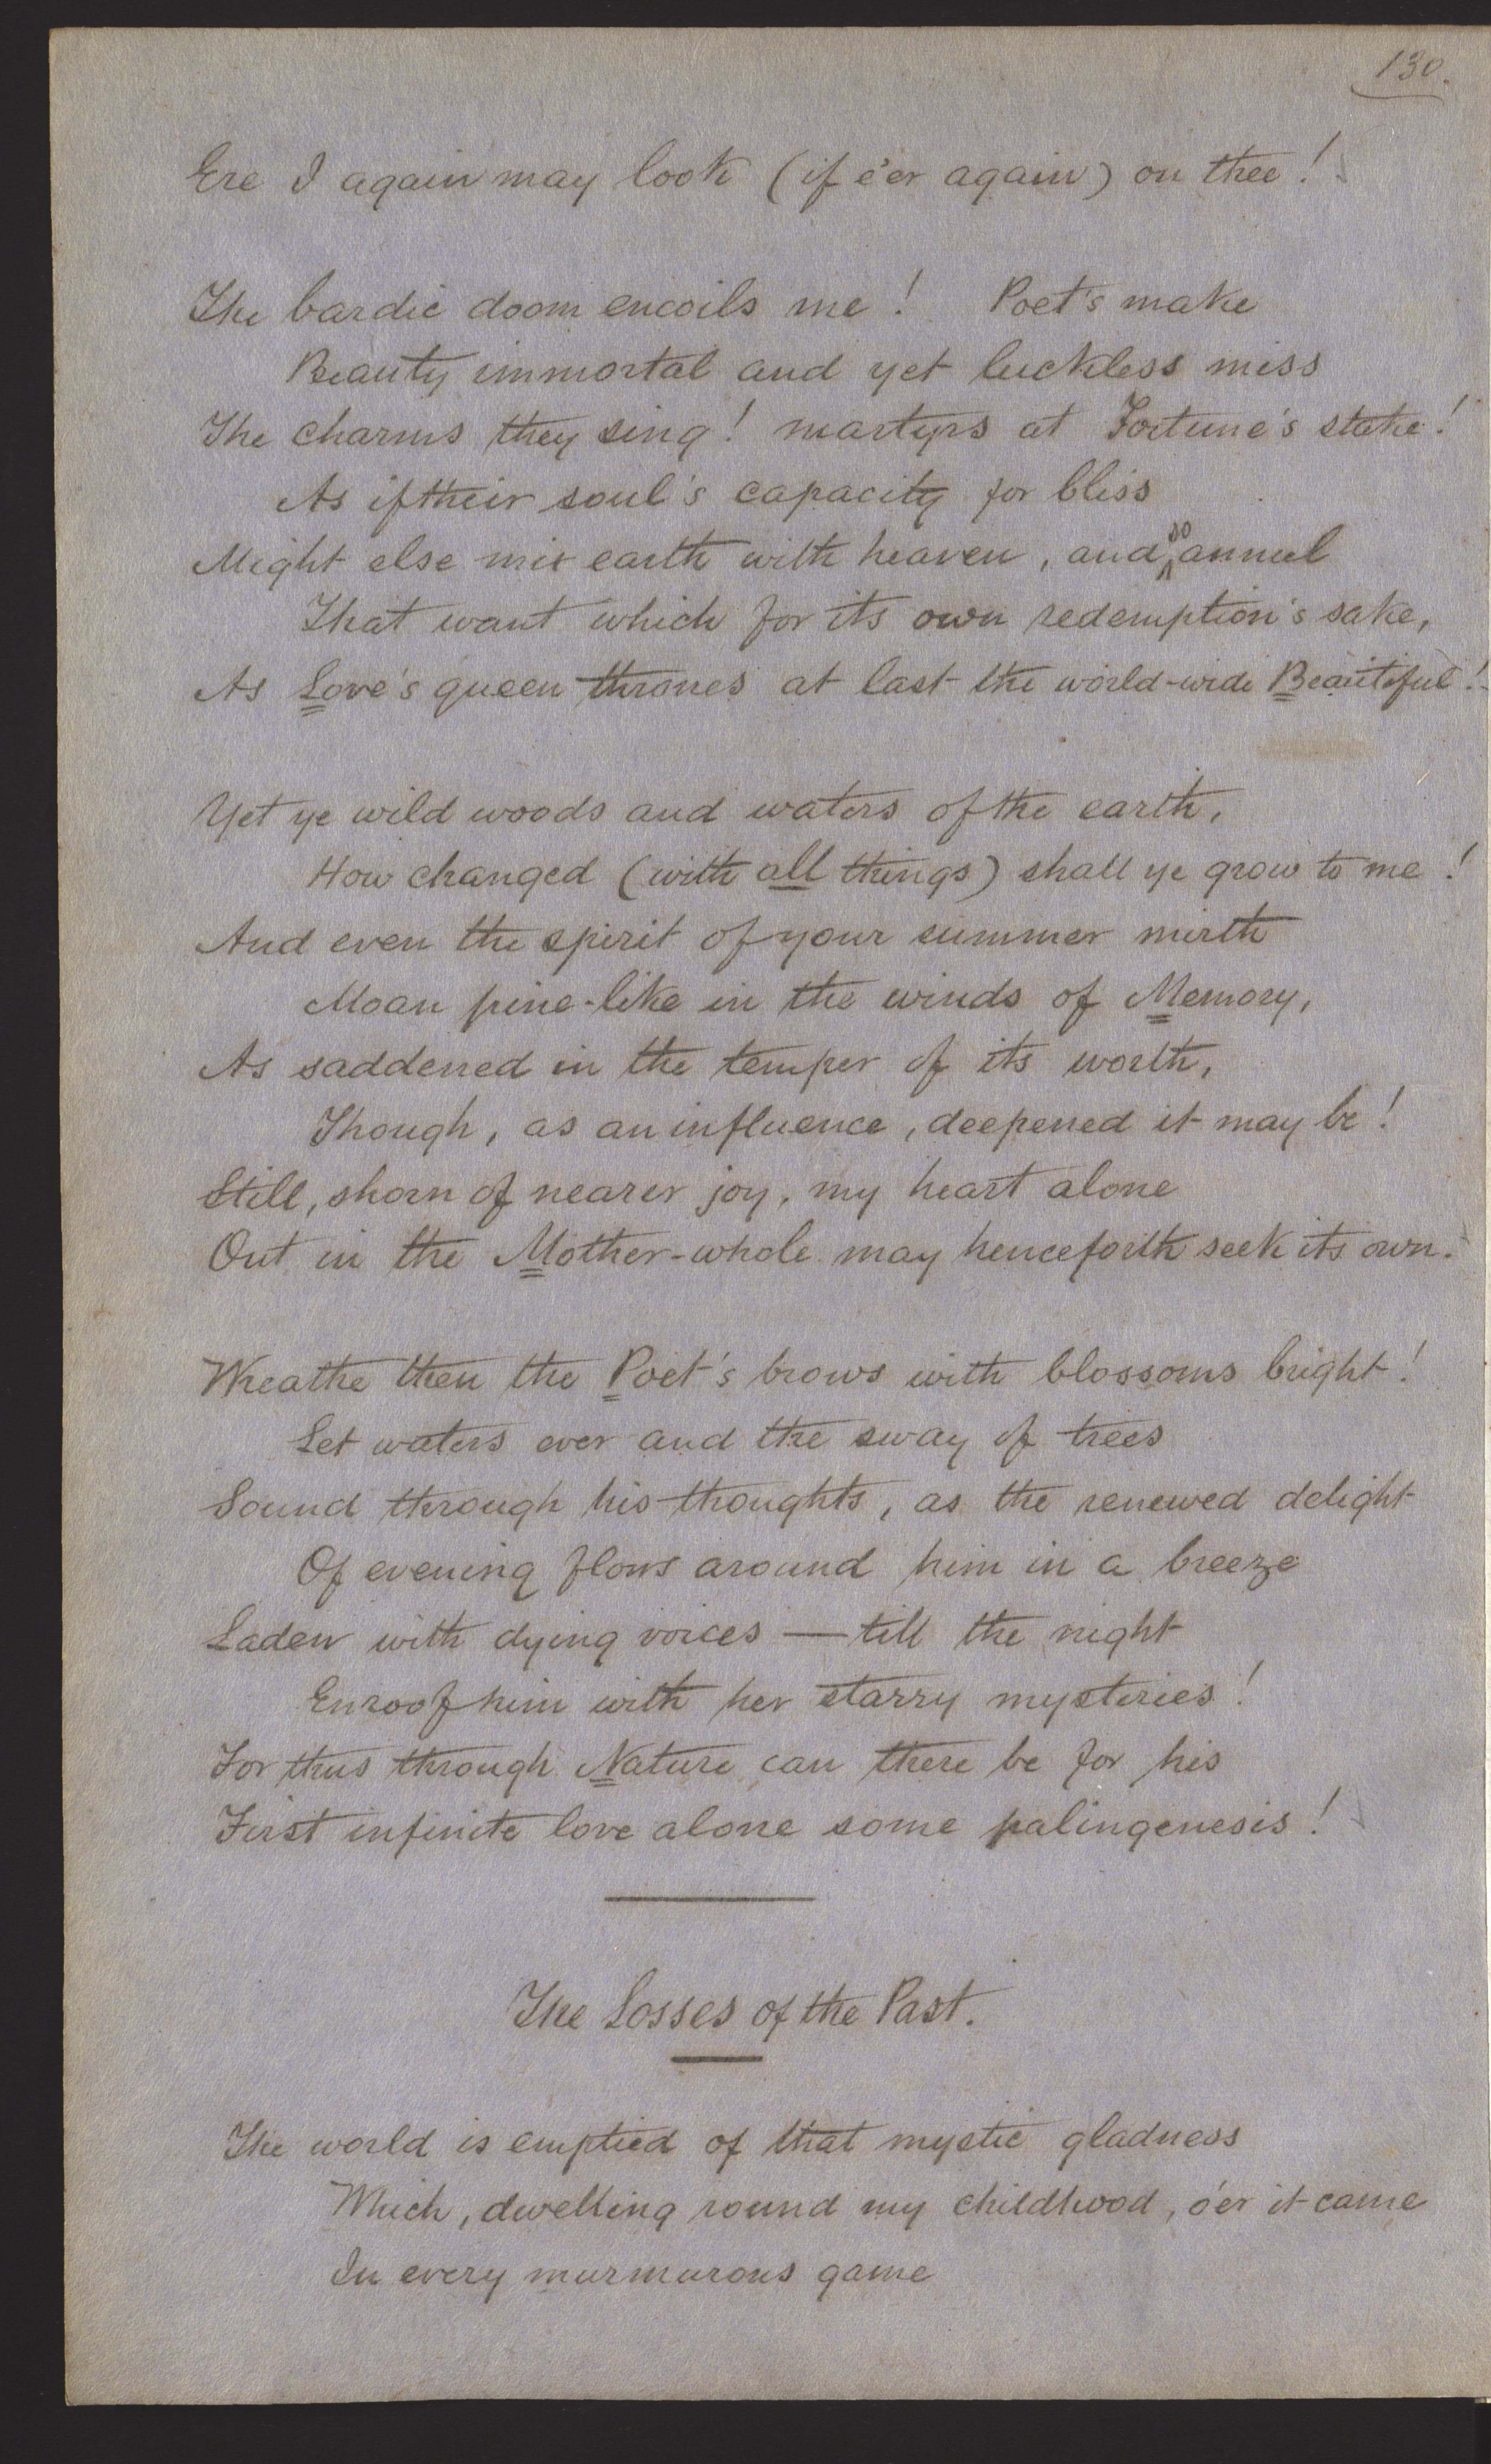 130.
Ere I again may look (if e'er again) on thee!
The bardic doom encoils me! Poet's make
Beauty immortal and yet luckless miss
The charms they sing! martyrs at Fortune's stake!
As if their soul's capacity for bliss
Might else mix earth with heaven, and so annul
That want which for its own redemption's sake,
As Love's queen thrones at last the world-wide Beautiful!
Yet ye wild woods and waters of the earth,
How changed (with all things) shall ye grow to me!
And even the spirit of your summer mirth
Moan pine-like in the winds of Memory,
As saddened in the temper of its worth,
Though, as an influence, deepened it may be!
Still, shorn of nearer joy, my heart alone
Out in the Mother-whole may henceforth seek its own.
Wreathe then the Poet's brows with blossoms bright!
Let waters ever and the sway of trees
Sound through his thoughts, as the renewed delight
Of evening flows around him in a breeze
Laden with dying voices — till the night
Enroof him with her starry mysteries!
For thus through Nature can there be for his
First infinite love alone some palingenesis!
The Losses of the Past.
The world is emptied of that mystic gladness
Which, dwelling round my childhood, o'er it came
In every murmurous game